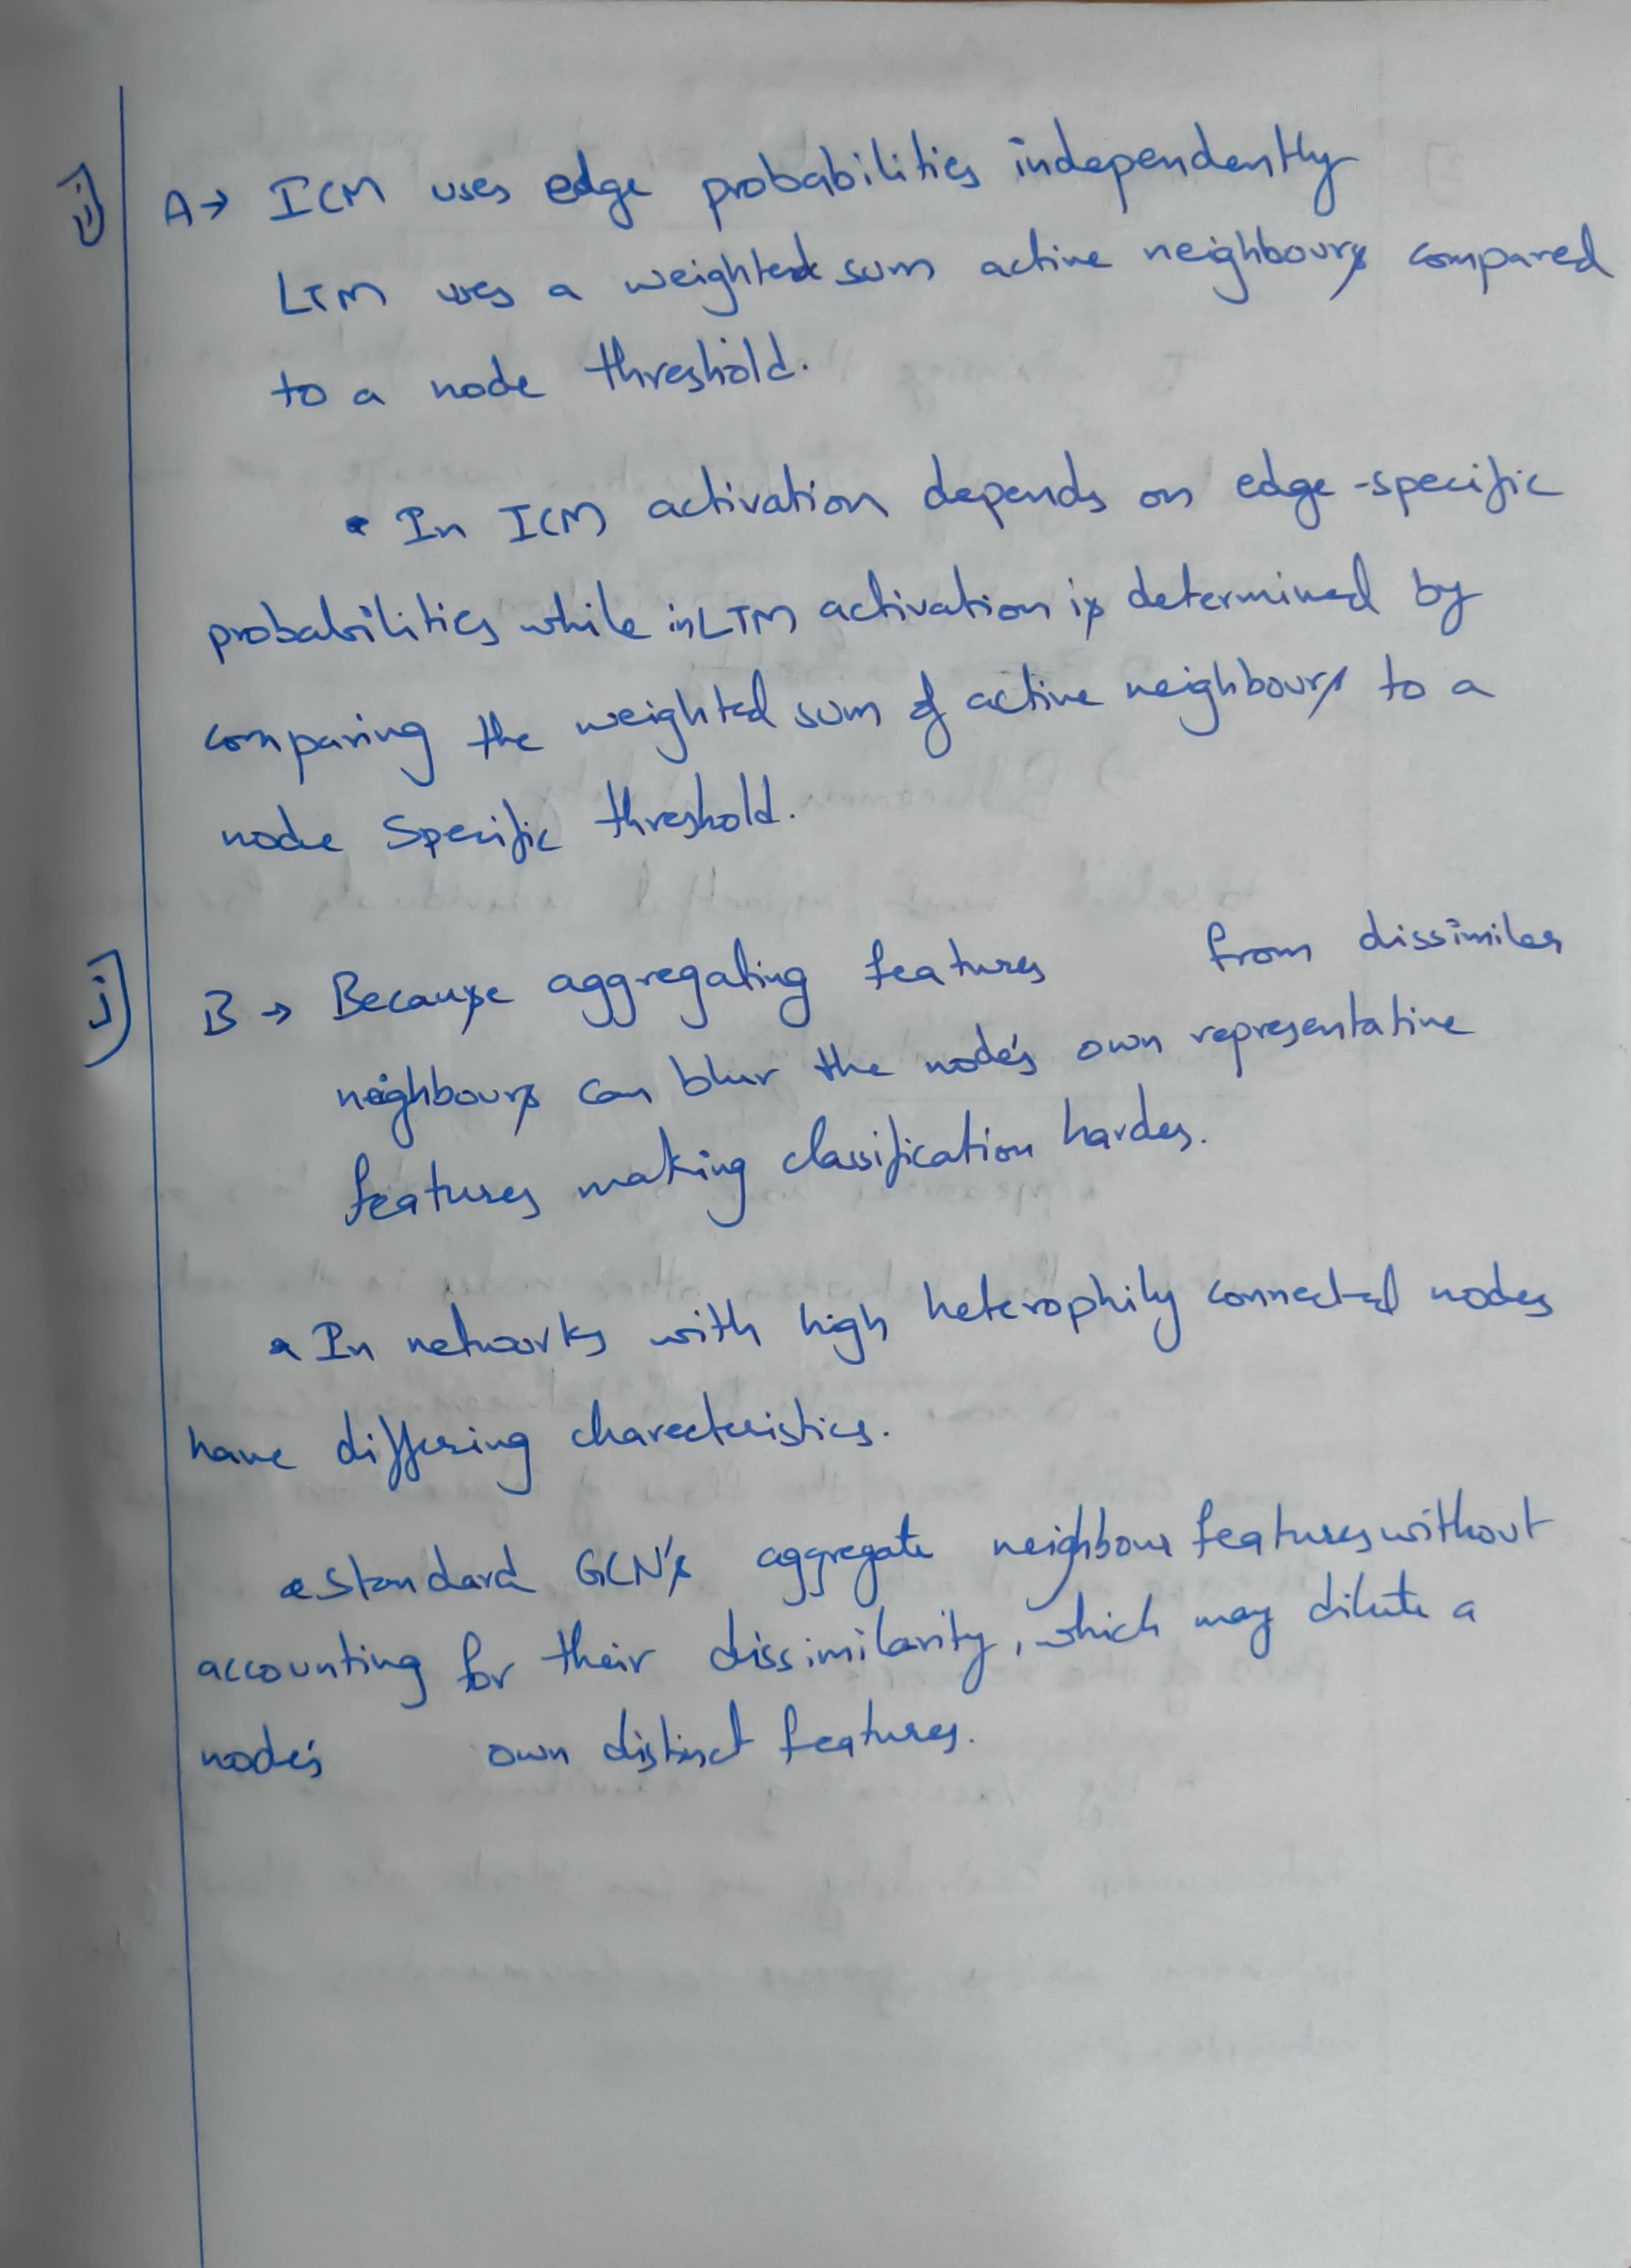 i) A→ ICM uses edge probabilities independently
LTM uses a weighted sum active neighbours compared
to a node threshold.
• In ICM activation depends on edge-specific
probabilities while in LTM activation is determined by
comparing the weighted sum of active neighbours to a
node Specific threshold.
j) B → Because aggregating features from dissimiler
neighbours can blur the node's own representative
features making classification harder.
• In networks with high heterophily connected nodes
have differing charecteristics.
• Standard GCN's aggregate neighbour features without
accounting for their dissimilarity, which may dilute a
node's own distinct features.